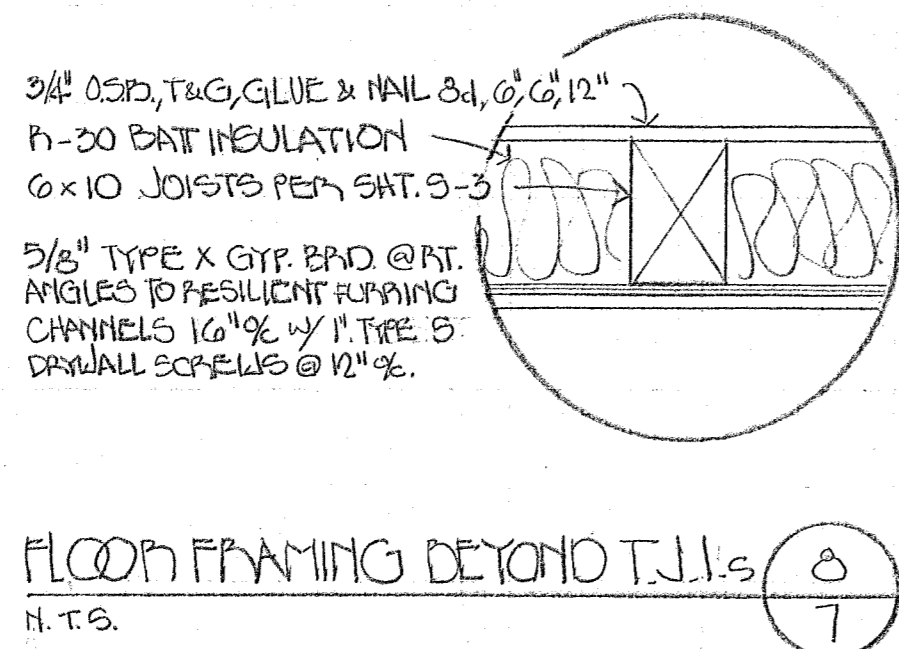 3/4" O.S.B., T&G, GLUE & NAIL 8d, 6", 6", 12"
R-30 BATT INSULATION
6x10 JOISTS PER SHT. S-3
5/8" TYPE X GYP. BRD. @ RT.
ANGLES TO RESILIENT FURRING
CHANNELS 16" o/c w/ 1" TYPE S
DRYWALL SCREWS @ 12" o/c.
FLOOR FRAMING BEYOND T.J.I.s
8
7
N.T.S.